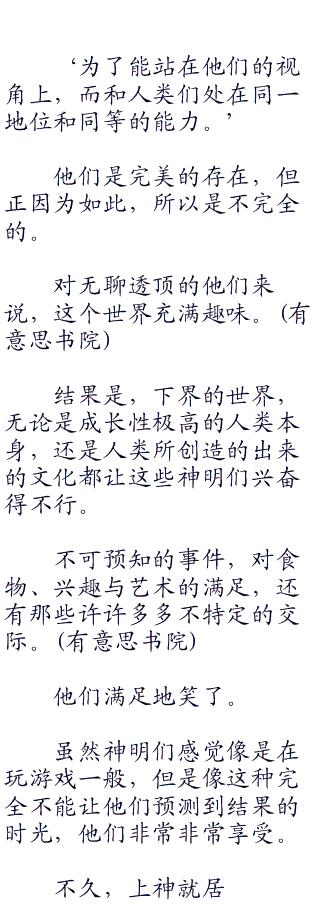 ‘为了能站在他们的视
角上，而和人类们处在同一
地位和同等的能力。’
他们是完美的存在，但
正因为如此，所以是不完全
的。
对无聊透顶的他们来
说，这个世界充满趣味。(有
意思书院)
结果是，下界的世界，
无论是成长性极高的人类本
身，还是人类所创造的出来
的文化都让这些神明们兴奋
得不行。
不可预知的事件，对食
物、兴趣与艺术的满足，还
有那些许许多多不特定的交
际。(有意思书院)
他们满足地笑了。
虽然神明们感觉像是在
玩游戏一般，但是像这种完
全不能让他们预测到结果的
时光，他们非常非常享受。
不久，上神就居